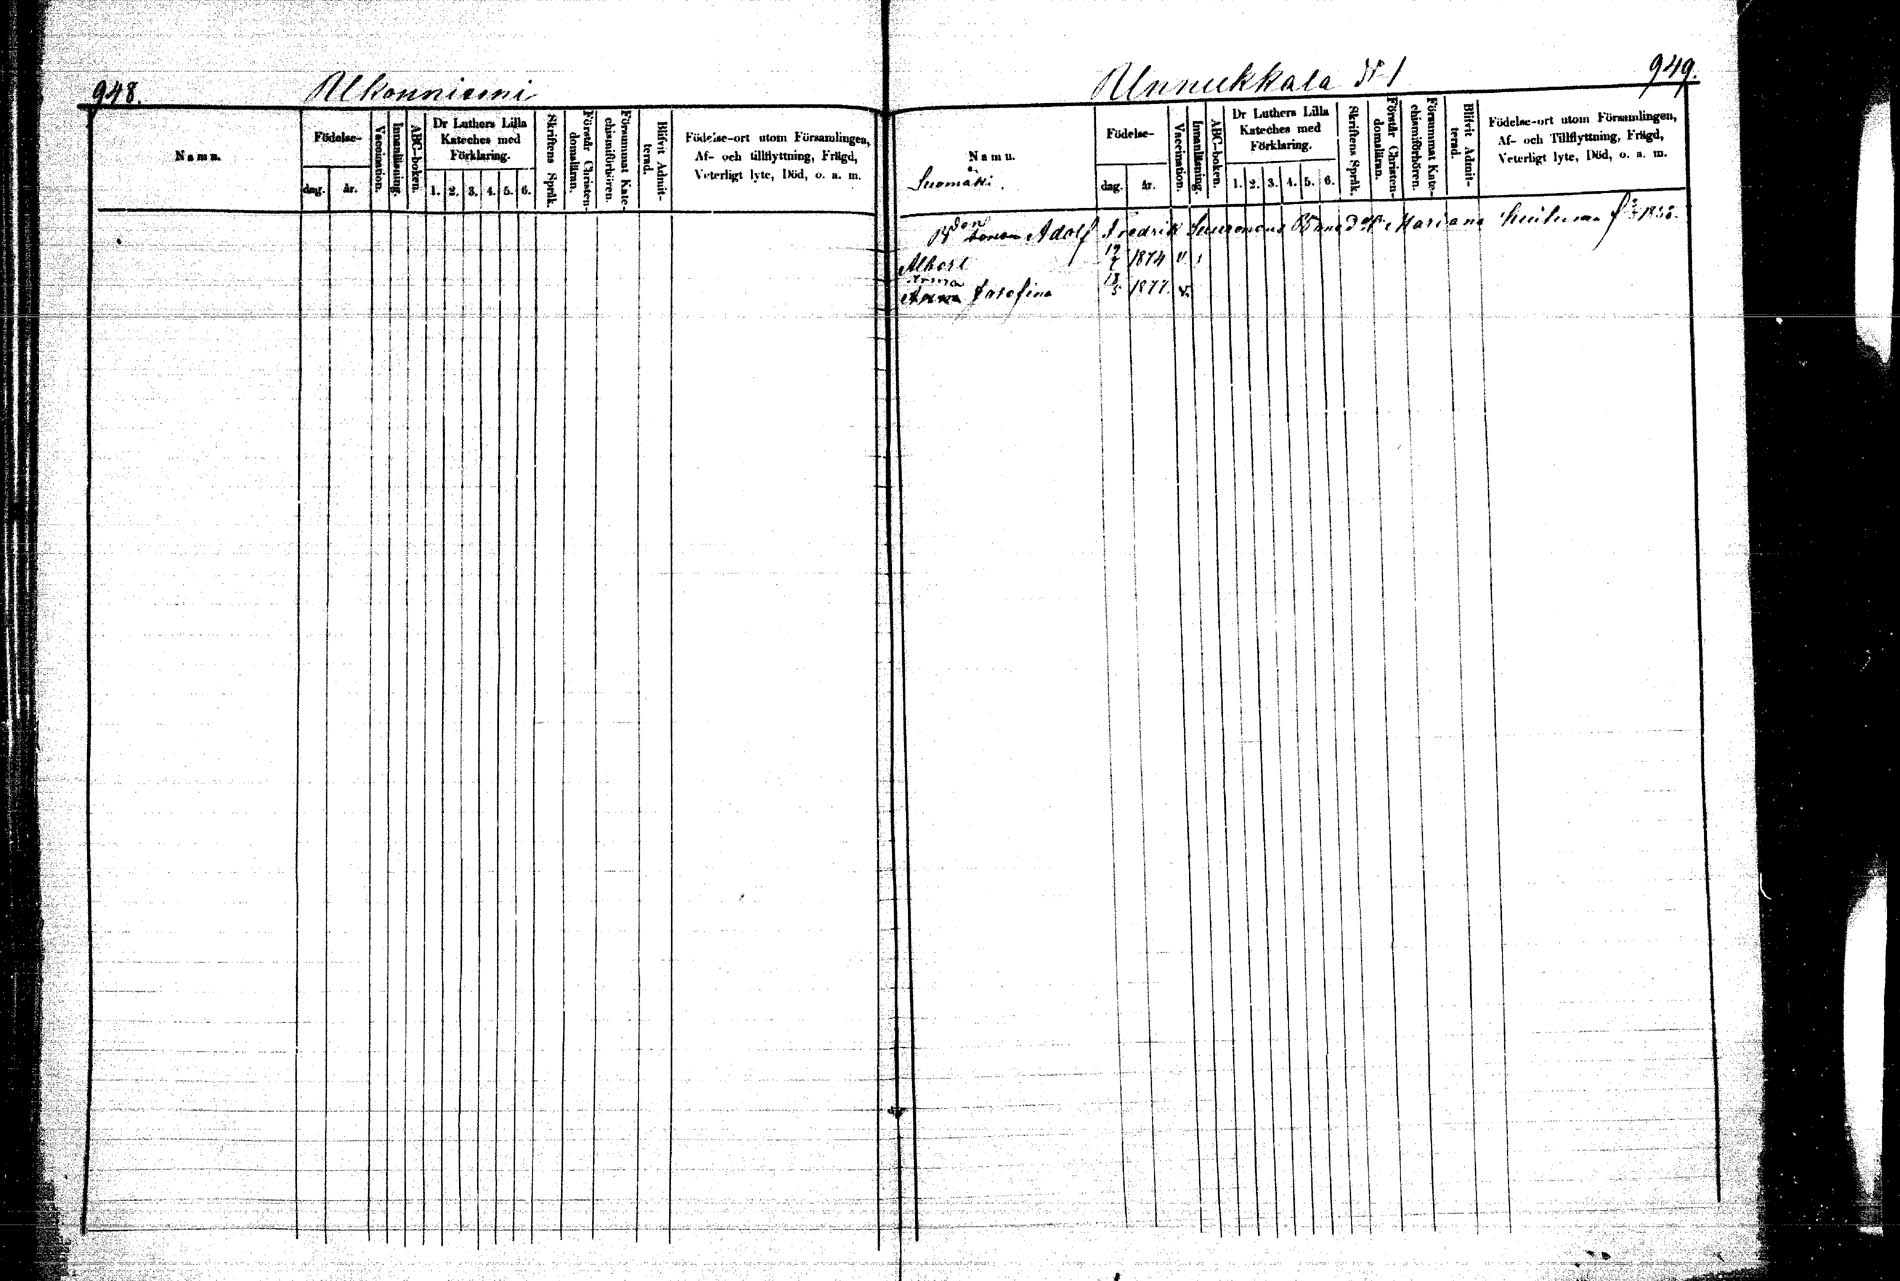 948.
Ukonniemi
Namn.
Födelse-
dag.
år.
Vaccination.
Innanläsning.
ABC-boken.
Dr Luthers Lilla
Kateches med
Förklaring.
1. 2. 3. 4. 5. 6.
Skriftens Språk.
Förstår Christen-
domsläran.
Försummat Kate-
chismiförhören.
Blifvit Admit-
terad.
Födelse-ort utom Församlingen,
Af- och tillflyttning, Frägd,
Veterligt lyte, Död, o. a. m.
Unnukkala № 1
949.
Namn.
Suomäki.
Födelse-
dag.
år.
Vaccination.
Innanläsning.
ABC-boken.
Dr Luthers Lilla
Kateches med
Förklaring.
1. 2. 3. 4. 5. 6.
Skriftens Språk.
Förstår Christen-
domsläran.
Försummat Kate-
chismiförhören.
Blifvit Admit-
terad.
Födelse-ort utom Församlingen,
Af- och Tillflyttning, Frägd,
Veterligt lyte, Död, o. a. m.
son Adolf Fredrik Mariana
Albert 19/7 1874 v
Irma
Anna Josefina 18/5 1877. v.